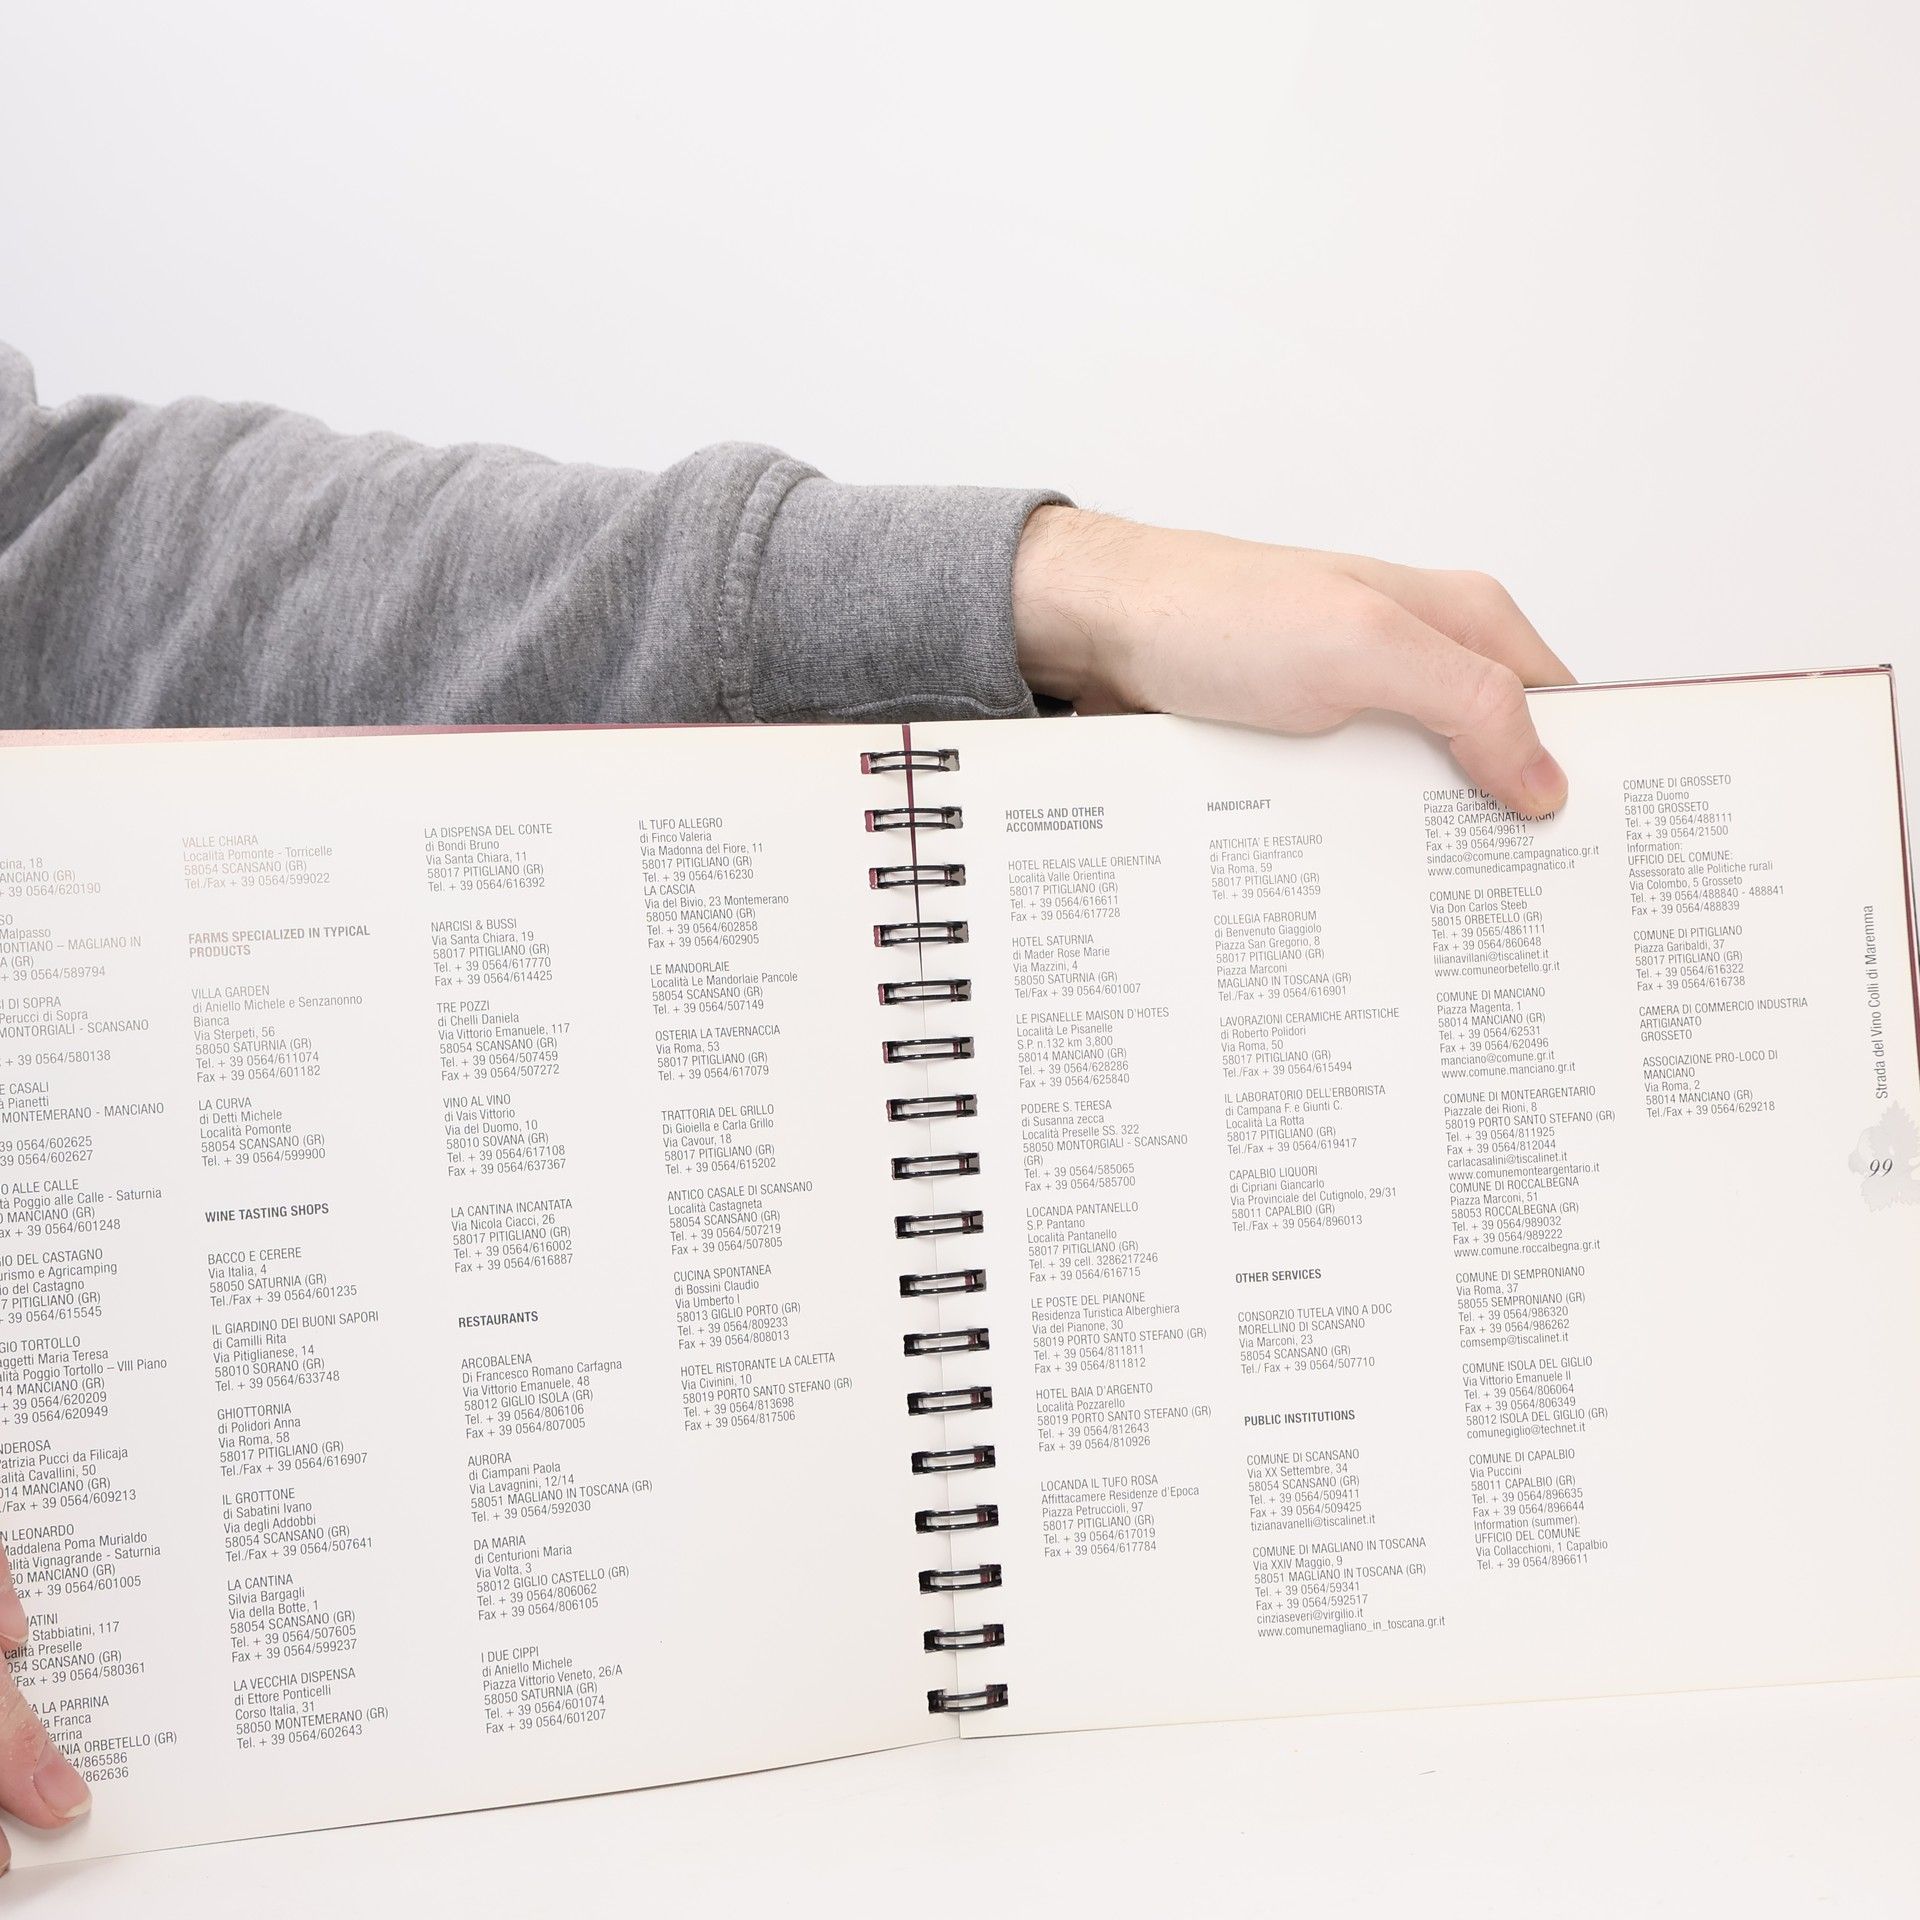 cina, 18
ANCIANO (GR)
+ 39 0564/620190
SO
Malpasso
MONTIANO – MAGLIANO IN
A (GR)
+ 39 0564/589794
CI DI SOPRA
Perucci di Sopra
MONTORGIALI - SCANSANO
+ 39 0564/580138
E CASALI
à Pianetti
MONTEMERANO - MANCIANO
39 0564/602625
39 0564/602627
O ALLE CALLE
tà Poggio alle Calle - Saturnia
0 MANCIANO (GR)
ax + 39 0564/601248
GIO DEL CASTAGNO
urismo e Agricamping
io del Castagno
7 PITIGLIANO (GR)
+ 39 0564/615545
GIO TORTOLLO
aggetti Maria Teresa
alità Poggio Tortollo – VIII Piano
14 MANCIANO (GR)
+ 39 0564/620209
+ 39 0564/620949
NDEROSA
Patrizia Pucci da Filicaja
calità Cavallini, 50
014 MANCIANO (GR)
./Fax + 39 0564/609213
N LEONARDO
Maddalena Poma Murialdo
alità Vignagrande - Saturnia
50 MANCIANO (GR)
ax + 39 0564/601005
MATINI
Stabbiatini, 117
calità Preselle
054 SCANSANO (GR)
/Fax + 39 0564/580361
TA LA PARRINA
la Franca
arrina
INIA ORBETELLO (GR)
64/865586
/862636
VALLE CHIARA
Località Pomonte - Torricelle
58054 SCANSANO (GR)
Tel./Fax + 39 0564/599022
FARMS SPECIALIZED IN TYPICAL
PRODUCTS
VILLA GARDEN
di Aniello Michele e Senzanonno
Bianca
Via Sterpeti, 56
58050 SATURNIA (GR)
Tel. + 39 0564/611074
Fax + 39 0564/601182
LA CURVA
di Detti Michele
Località Pomonte
58054 SCANSANO (GR)
Tel. + 39 0564/599900
WINE TASTING SHOPS
BACCO E CERERE
Via Italia, 4
58050 SATURNIA (GR)
Tel./Fax + 39 0564/601235
IL GIARDINO DEI BUONI SAPORI
di Camilli Rita
Via Pitiglianese, 14
58010 SORANO (GR)
Tel. + 39 0564/633748
GHIOTTORNIA
di Polidori Anna
Via Roma, 58
58017 PITIGLIANO (GR)
Tel./Fax + 39 0564/616907
IL GROTTONE
di Sabatini Ivano
Via degli Addobbi
58054 SCANSANO (GR)
Tel./Fax + 39 0564/507641
LA CANTINA
Silvia Bargagli
Via della Botte, 1
58054 SCANSANO (GR)
Tel. + 39 0564/507605
Tel. + 39 0564/599237
LA VECCHIA DISPENSA
di Ettore Ponticelli
Corso Italia, 31
58050 MONTEMERANO (GR)
Tel. + 39 0564/602643
LA DISPENSA DEL CONTE
di Bondi Bruno
Via Santa Chiara, 11
58017 PITIGLIANO (GR)
Tel. + 39 0564/616392
NARCISI & BUSSI
Via Santa Chiara, 19
58017 PITIGLIANO (GR)
Tel. + 39 0564/617770
Fax + 39 0564/614425
TRE POZZI
di Chelli Daniela
Via Vittorio Emanuele, 117
58054 SCANSANO (GR)
Tel. + 39 0564/507459
Fax + 39 0564/507272
VINO AL VINO
di Vais Vittorio
Via del Duomo, 10
58010 SOVANA (GR)
Tel. + 39 0564/617108
Fax + 39 0564/637367
LA CANTINA INCANTATA
Via Nicola Ciacci, 26
58017 PITIGLIANO (GR)
Tel. + 39 0564/616002
Fax + 39 0564/616887
RESTAURANTS
ARCOBALENA
Di Francesco Romano Carfagna
Via Vittorio Emanuele, 48
58012 GIGLIO ISOLA (GR)
Tel. + 39 0564/806106
Fax + 39 0564/807005
AURORA
di Ciampani Paola
Via Lavagnini, 12/14
58051 MAGLIANO IN TOSCANA (GR)
Tel. + 39 0564/592030
DA MARIA
di Centurioni Maria
Via Volta, 3
58012 GIGLIO CASTELLO (GR)
Tel. + 39 0564/806062
Fax + 39 0564/806105
I DUE CIPPI
di Aniello Michele
Piazza Vittorio Veneto, 26/A
58050 SATURNIA (GR)
Tel. + 39 0564/601074
Fax + 39 0564/601207
IL TUFO ALLEGRO
di Finco Valeria
Via Madonna del Fiore, 11
58017 PITIGLIANO (GR)
Tel. + 39 0564/616230
LA CASCIA
Via del Bivio, 23 Montemerano
58050 MANCIANO (GR)
Tel. + 39 0564/602858
Fax + 39 0564/602905
LE MANDORLAIE
Località Le Mandorlaie Pancole
58054 SCANSANO (GR)
Tel. + 39 0564/507149
OSTERIA LA TAVERNACCIA
Via Roma, 53
58017 PITIGLIANO (GR)
Tel. + 39 0564/617079
TRATTORIA DEL GRILLO
Di Gioiella e Carla Grillo
Via Cavour, 18
58017 PITIGLIANO (GR)
Tel. + 39 0564/615202
ANTICO CASALE DI SCANSANO
Località Castagneta
58054 SCANSANO (GR)
Tel. + 39 0564/507219
Fax + 39 0564/507805
CUCINA SPONTANEA
di Bossini Claudio
Via Umberto I
58013 GIGLIO PORTO (GR)
Tel. + 39 0564/809233
Fax + 39 0564/808013
HOTEL RISTORANTE LA CALETTA
Via Civinini, 10
58019 PORTO SANTO STEFANO (GR)
Tel. + 39 0564/813698
Fax + 39 0564/817506
HOTELS AND OTHER
ACCOMMODATIONS
HOTEL RELAIS VALLE ORIENTINA
Località Valle Orientina
58017 PITIGLIANO (GR)
Tel. + 39 0564/616611
Fax + 39 0564/617728
HOTEL SATURNIA
di Mader Rose Marie
Via Mazzini, 4
58050 SATURNIA (GR)
Tel/Fax + 39 0564/601007
LE PISANELLE MAISON D'HOTES
Località Le Pisanelle
S.P. n.132 km 3,800
58014 MANCIANO (GR)
Tel. + 39 0564/628286
Fax + 39 0564/625840
PODERE S. TERESA
di Susanna zecca
Località Preselle SS. 322
58050 MONTORGIALI - SCANSANO
(GR)
Tel. + 39 0564/585065
Fax + 39 0564/585700
LOCANDA PANTANELLO
S.P. Pantano
Località Pantanello
58017 PITIGLIANO (GR)
Tel. + 39 cell. 3286217246
Fax + 39 0564/616715
LE POSTE DEL PIANONE
Residenza Turistica Alberghiera
Via del Pianone, 30
58019 PORTO SANTO STEFANO (GR)
Tel. + 39 0564/811811
Fax + 39 0564/811812
HOTEL BAIA D'ARGENTO
Località Pozzarello
58019 PORTO SANTO STEFANO (GR)
Tel. + 39 0564/812643
Fax + 39 0564/810926
LOCANDA IL TUFO ROSA
Affittacamere Residenze d'Epoca
Piazza Petruccioli, 97
58017 PITIGLIANO (GR)
Tel. + 39 0564/617019
Tel. + 39 0564/617784
HANDICRAFT
ANTICHITA' E RESTAURO
di Franci Gianfranco
Via Roma, 59
58017 PITIGLIANO (GR)
Tel. + 39 0564/614359
COLLEGIA FABRORUM
di Benvenuto Giaggiolo
Piazza San Gregorio, 8
58017 PITIGLIANO (GR)
Piazza Marconi
MAGLIANO IN TOSCANA (GR)
Tel./Fax + 39 0564/616901
LAVORAZIONI CERAMICHE ARTISTICHE
di Roberto Polidori
Via Roma, 50
58017 PITIGLIANO (GR)
Tel./Fax + 39 0564/615494
IL LABORATORIO DELL'ERBORISTA
di Campana F. e Giunti C.
Località La Rotta
58017 PITIGLIANO (GR)
Tel./Fax + 39 0564/619417
CAPALBIO LIQUORI
di Cipriani Giancarlo
Via Provinciale del Cutignolo, 29/31
58011 CAPALBIO (GR)
Tel./Fax + 39 0564/896013
OTHER SERVICES
CONSORZIO TUTELA VINO A DOC
MORELLINO DI SCANSANO
Via Marconi, 23
58054 SCANSANO (GR)
Tel./ Fax + 39 0564/507710
PUBLIC INSTITUTIONS
COMUNE DI SCANSANO
Via XX Settembre, 34
58054 SCANSANO (GR)
Tel. + 39 0564/509411
Fax + 39 0564/509425
tizianavanelli@tiscalinet.it
COMUNE DI MAGLIANO IN TOSCANA
Via XXIV Maggio, 9
58051 MAGLIANO IN TOSCANA (GR)
Tel. + 39 0564/59341
Fax + 39 0564/592517
cinziaseveri@virgilio.it
www.comunemagliano_in_toscana.gr.it
COMUNE DI CA
Piazza Garibaldi,
58042 CAMPAGNATICO (GR)
Tel. + 39 0564/99611
Fax + 39 0564/996727
sindaco@comune.campagnatico.gr.it
www.comunedicampagnatico.it
COMUNE DI ORBETELLO
Via Don Carlos Steeb
58015 ORBETELLO (GR)
Tel. + 39 0565/4861111
Fax + 39 0564/860648
lilianavillani@tiscalinet.it
www.comuneorbetello.gr.it
COMUNE DI MANCIANO
Piazza Magenta, 1
58014 MANCIANO (GR)
Tel. + 39 0564/62531
Fax + 39 0564/620496
manciano@comune.gr.it
www.comune.manciano.gr.it
COMUNE DI MONTEARGENTARIO
Piazzale dei Rioni, 8
58019 PORTO SANTO STEFANO (GR)
Tel. + 39 0564/811925
Fax + 39 0564/812044
carlacasalini@tiscalinet.it
www.comunemonteargentario.it
COMUNE DI ROCCALBEGNA
Piazza Marconi, 51
58053 ROCCALBEGNA (GR)
Tel. + 39 0564/989032
Fax + 39 0564/989222
www.comune.roccalbegna.gr.it
COMUNE DI SEMPRONIANO
Via Roma, 37
58055 SEMPRONIANO (GR)
Tel. + 39 0564/986320
Fax + 39 0564/986262
comsemp@tiscalinet.it
COMUNE ISOLA DEL GIGLIO
Via Vittorio Emanuele II
Tel. + 39 0564/806064
Fax + 39 0564/806349
58012 ISOLA DEL GIGLIO (GR)
comunegiglio@technet.it
COMUNE DI CAPALBIO
Via Puccini
58011 CAPALBIO (GR)
Tel. + 39 0564/896635
Fax + 39 0564/896644
Information (summer).
UFFICIO DEL COMUNE
Via Collacchioni, 1 Capalbio
Tel. + 39 0564/896611
COMUNE DI GROSSETO
Piazza Duomo
58100 GROSSETO
Tel. + 39 0564/488111
Fax + 39 0564/21500
Information:
UFFICIO DEL COMUNE:
Assessorato alle Politiche rurali
Via Colombo, 5 Grosseto
Tel. + 39 0564/488840 - 488841
Fax + 39 0564/488839
COMUNE DI PITIGLIANO
Piazza Garibaldi, 37
58017 PITIGLIANO (GR)
Tel. + 39 0564/616322
Fax + 39 0564/616738
CAMERA DI COMMERCIO INDUSTRIA
ARTIGIANATO
GROSSETO
ASSOCIAZIONE PRO-LOCO DI
MANCIANO
Via Roma, 2
58014 MANCIANO (GR)
Tel./Fax + 39 0564/629218
Strada del Vino Colli di Maremma
99